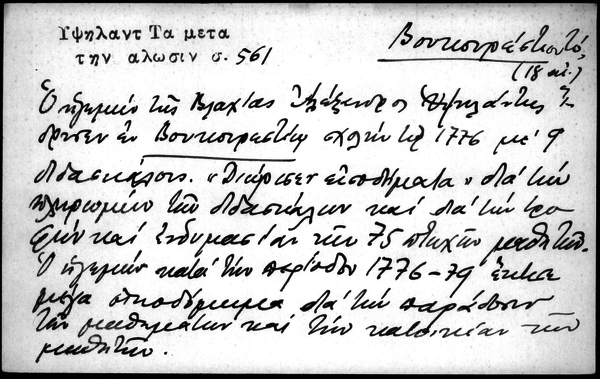 Υψηλαντ Τα μετα
την αλωσιν σ. 561
Βουκουρέστιον τό,
(18 αἰ.)
Ὁ ἡγεμών τῆς Βλαχίας Ἀλέξανδρος Ὑψηλάντης ἵ-
δρυσεν ἐν Βουκουρεστίῳ σχολήν τῷ 1776 μέ 9
διδασκάλους. "Διώρισεν εἰσοδήματα" διά τήν
πληρωμήν τῶν διδασκάλων καί διά τήν τρο-
φήν καί ἐνδυμασίαν τῶν 75 πτωχῶν μαθητῶν.
Ὁ ἡγεμών κατά τήν περίοδον 1776-79 ἔκτισε
μέγα οἰκοδόμημα διά τήν παράδοσιν
τῶν μαθημάτων καί τήν κατοικίαν τῶν
μαθητῶν.